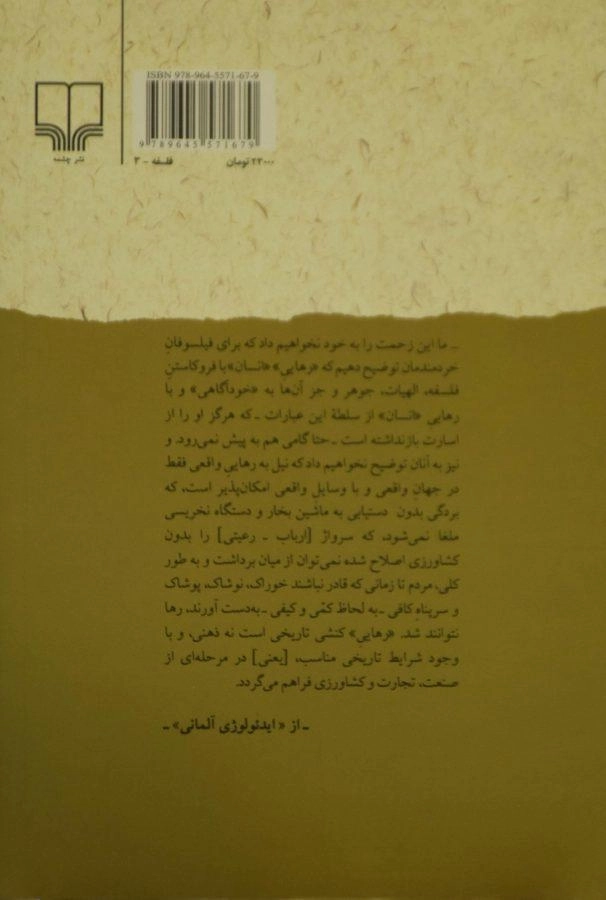 ISBN 978-964-5571-67-9
9 789645 571679
نشر چشمه
فلسفه - ۳
۲۳۰۰۰ تومان
ـ ما این زحمت را به خود نخواهیم داد که برای فیلسوفانِ
خردمندمان توضیح دهیم که «رهایی» «انسان» با فروکاستنِ
فلسفه، الهیات، جوهر و جز آن‌ها به «خودآگاهی» و با
رهایی «انسان» از سلطهٔ این عبارات ـ که هرگز او را از
اسارت بازنداشته است ـ حتا گامی هم به پیش نمی‌رود. و
نیز به آنان توضیح نخواهیم داد که نیل به رهایی واقعی فقط
در جهانِ واقعی و با وسایل واقعی امکان‌پذیر است، که
بردگی بدون دستیابی به ماشین بخار و دستگاه نخریسی
ملغا نمی‌شود، که سرواژ [ارباب ـ رعیتی] را بدون
کشاورزی اصلاح شده نمی‌توان از میان برداشت و به طور
کلی، مردم تا زمانی که قادر نباشند خوراک، نوشاک، پوشاک
و سرپناهِ کافی ـ به لحاظ کمّی و کیفی ـ به‌دست آورند، رها
نتوانند شد. «رهایی» کنشی تاریخی است نه ذهنی، و با
وجود شرایط تاریخی مناسب، [یعنی] در مرحله‌ای از
صنعت، تجارت و کشاورزی فراهم می‌گردد.
ـ از «ایدئولوژی آلمانی» ـ